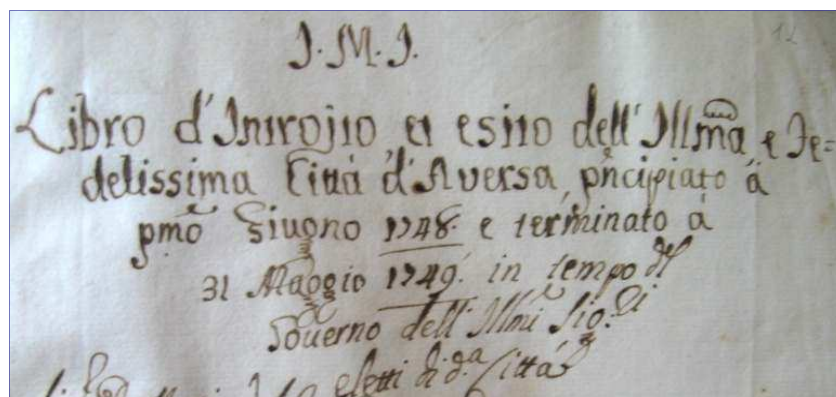 J. M. J.
12
Libro d'Introjto et esito dell'Illma, e Fe=
delissima Città d'Aversa, pncipiato à
pmo Giugno 1748. e terminato à
31 Maggio 1749. in tempo del
Governo dell'Illmi Sig.ri
eletti di d.a Città